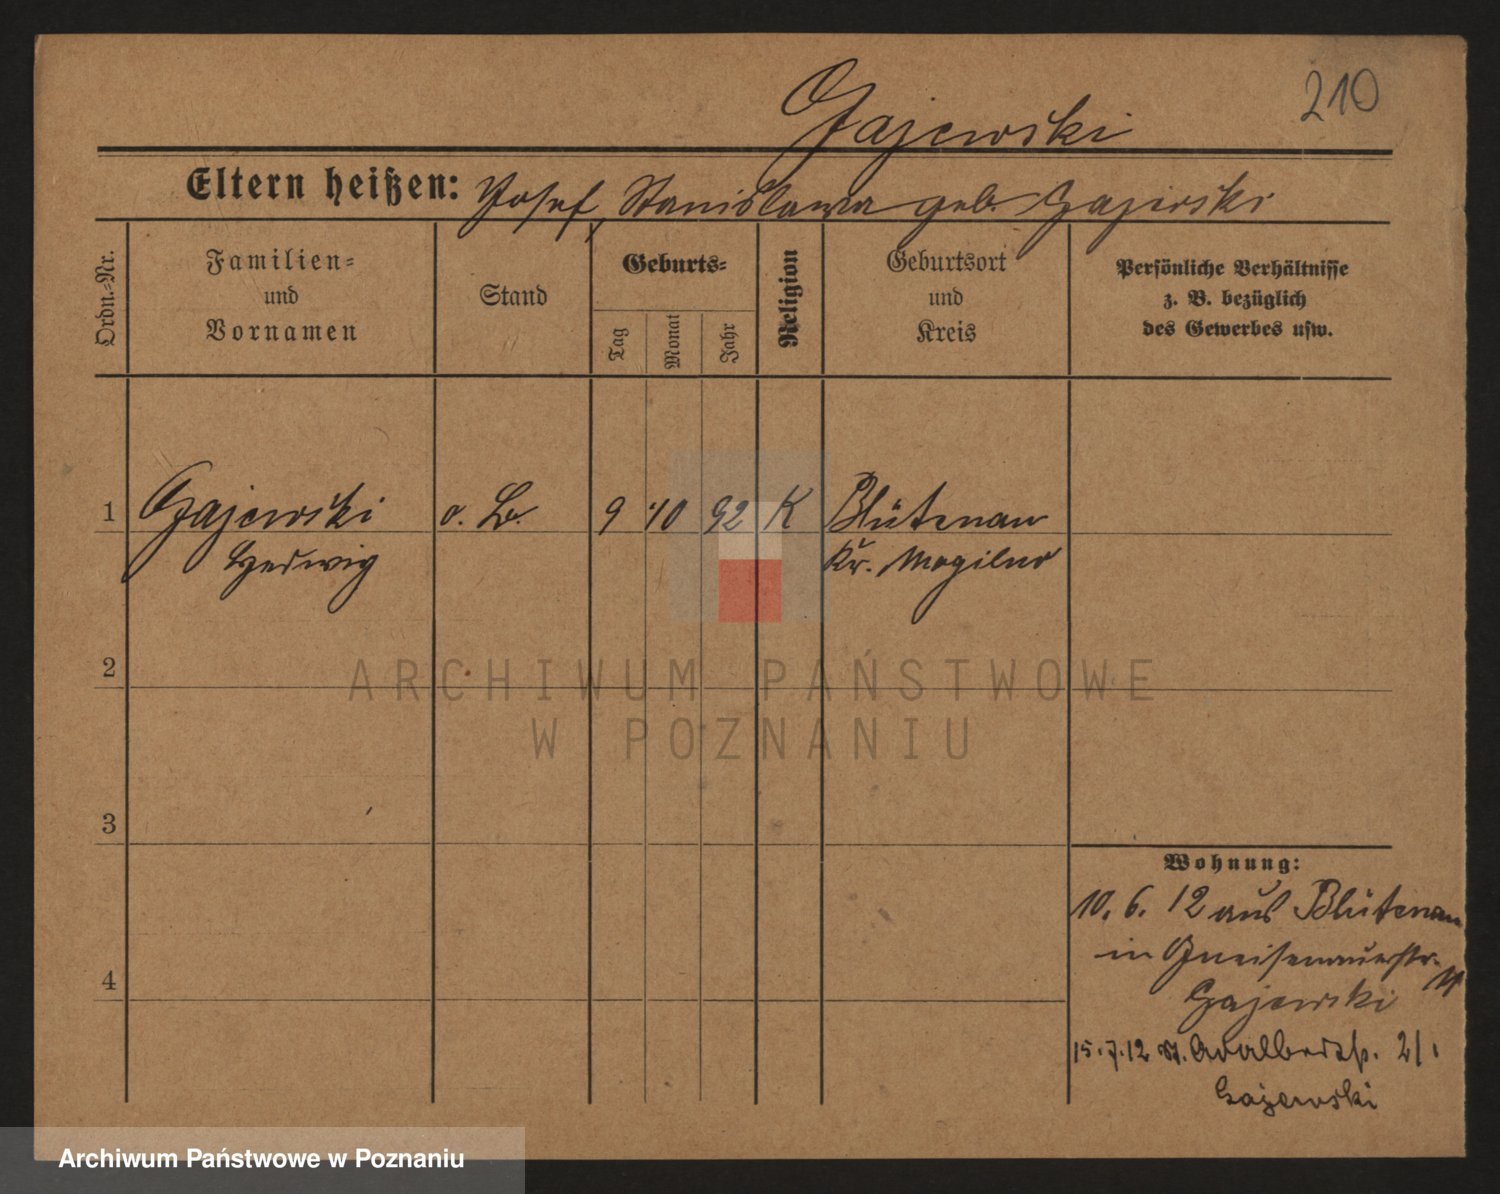 210
Gajewski
Eltern heißen: Josef, Stanislawa geb. Gajewski
Ordn.-Nr.
Familien-
und
Vornamen
Stand
Geburts-
Tag
Monat
Jahr
Religion
Geburtsort
und
Kreis
Persönliche Verhältnisse
z. B. bezüglich
des Gewerbes usw.
1 Gajewski o. B. 9 10 92 K Blütenau
Hedwig Kr. Mogilno
2
ARCHIWUM PAŃSTWOWE
W POZNANIU
3
Wohnung:
10. 6. 12 aus Blütenau
in Gneisenauerstr.
4
Gajewski
15.7.12 St. Adalbertstr. 2/1
Gajewski
Archiwum Państwowe w Poznaniu